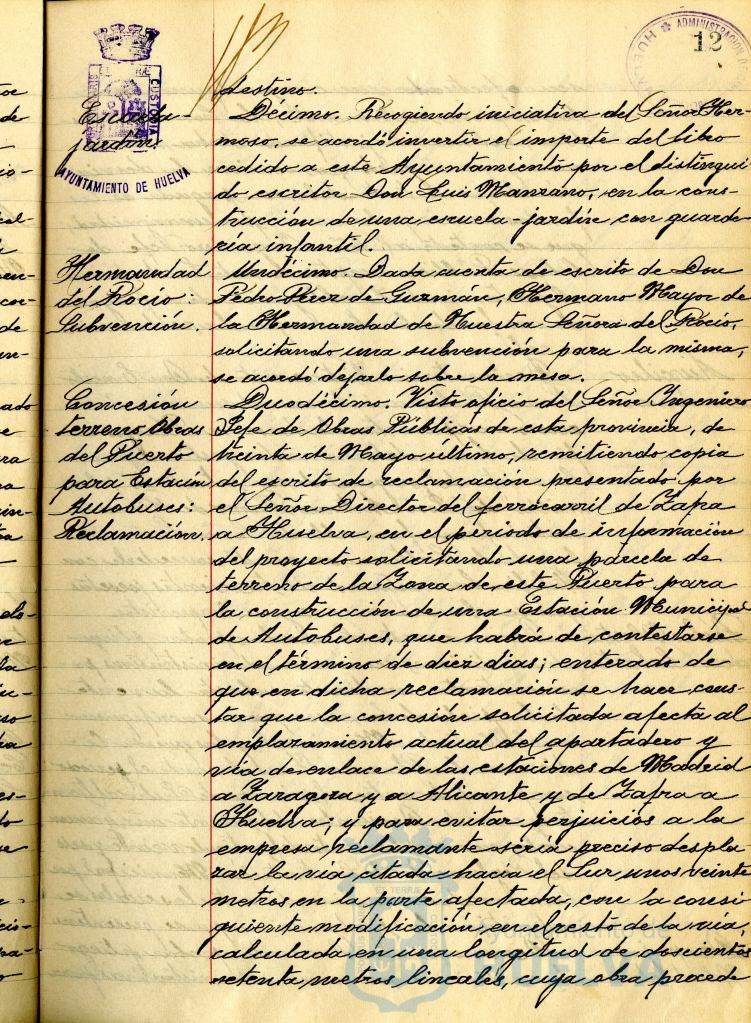 12
ADMINISTRACION
HUE
ET TERRÆ
CUSTODIA
AYUNTAMIENTO DE HUELVA
Escuela-
jardín
destino.
Décimo. Recogiendo iniciativa del Señor Her-
moso, se acordó invertir el importe del libro
cedido a este Ayuntamiento por el distingui-
do escritor Don Luis Manzano, en la cons-
trucción de una escuela-jardín con guarde-
ría infantil.
Hermandad
del Rocío:
Subvención.
Undécimo. Dada cuenta de escrito de Don
Pedro Pérez de Guzmán, Hermano Mayor de
la Hermandad de Nuestra Señora del Rocío,
solicitando una subvención para la misma,
se acordó dejarlo sobre la mesa.
Concesión
terreno Obras
del Puerto
para Estación
Autobuses:
Reclamación.
Duodécimo. Visto oficio del Señor Ingeniero
Jefe de Obras Públicas de esta provincia, de
treinta de Mayo último, remitiendo copia
del escrito de reclamación presentado por
el Señor Director del ferrocarril de Zafra
a Huelva, en el periodo de información
del proyecto solicitando una parcela de
terreno de la Zona de este Puerto para
la construcción de una Estación Municipal
de Autobuses, que habrá de contestarse
en el término de diez dias; enterado de
que en dicha reclamación se hace cons-
tar que la concesión solicitada afecta al
emplazamiento actual del apartadero y
vía de enlace de las estaciones de Madrid
a Zaragoza y a Alicante y de Zafra a
Huelva; y para evitar perjuicios a la
empresa reclamante sería preciso despla
zar la vía citada hacia el Sur unos veinte
metros en la parte afectada, con la consi
guiente modificación en el resto de la vía,
calculada en una longitud de doscientos
setenta metros lineales, cuya obra procede